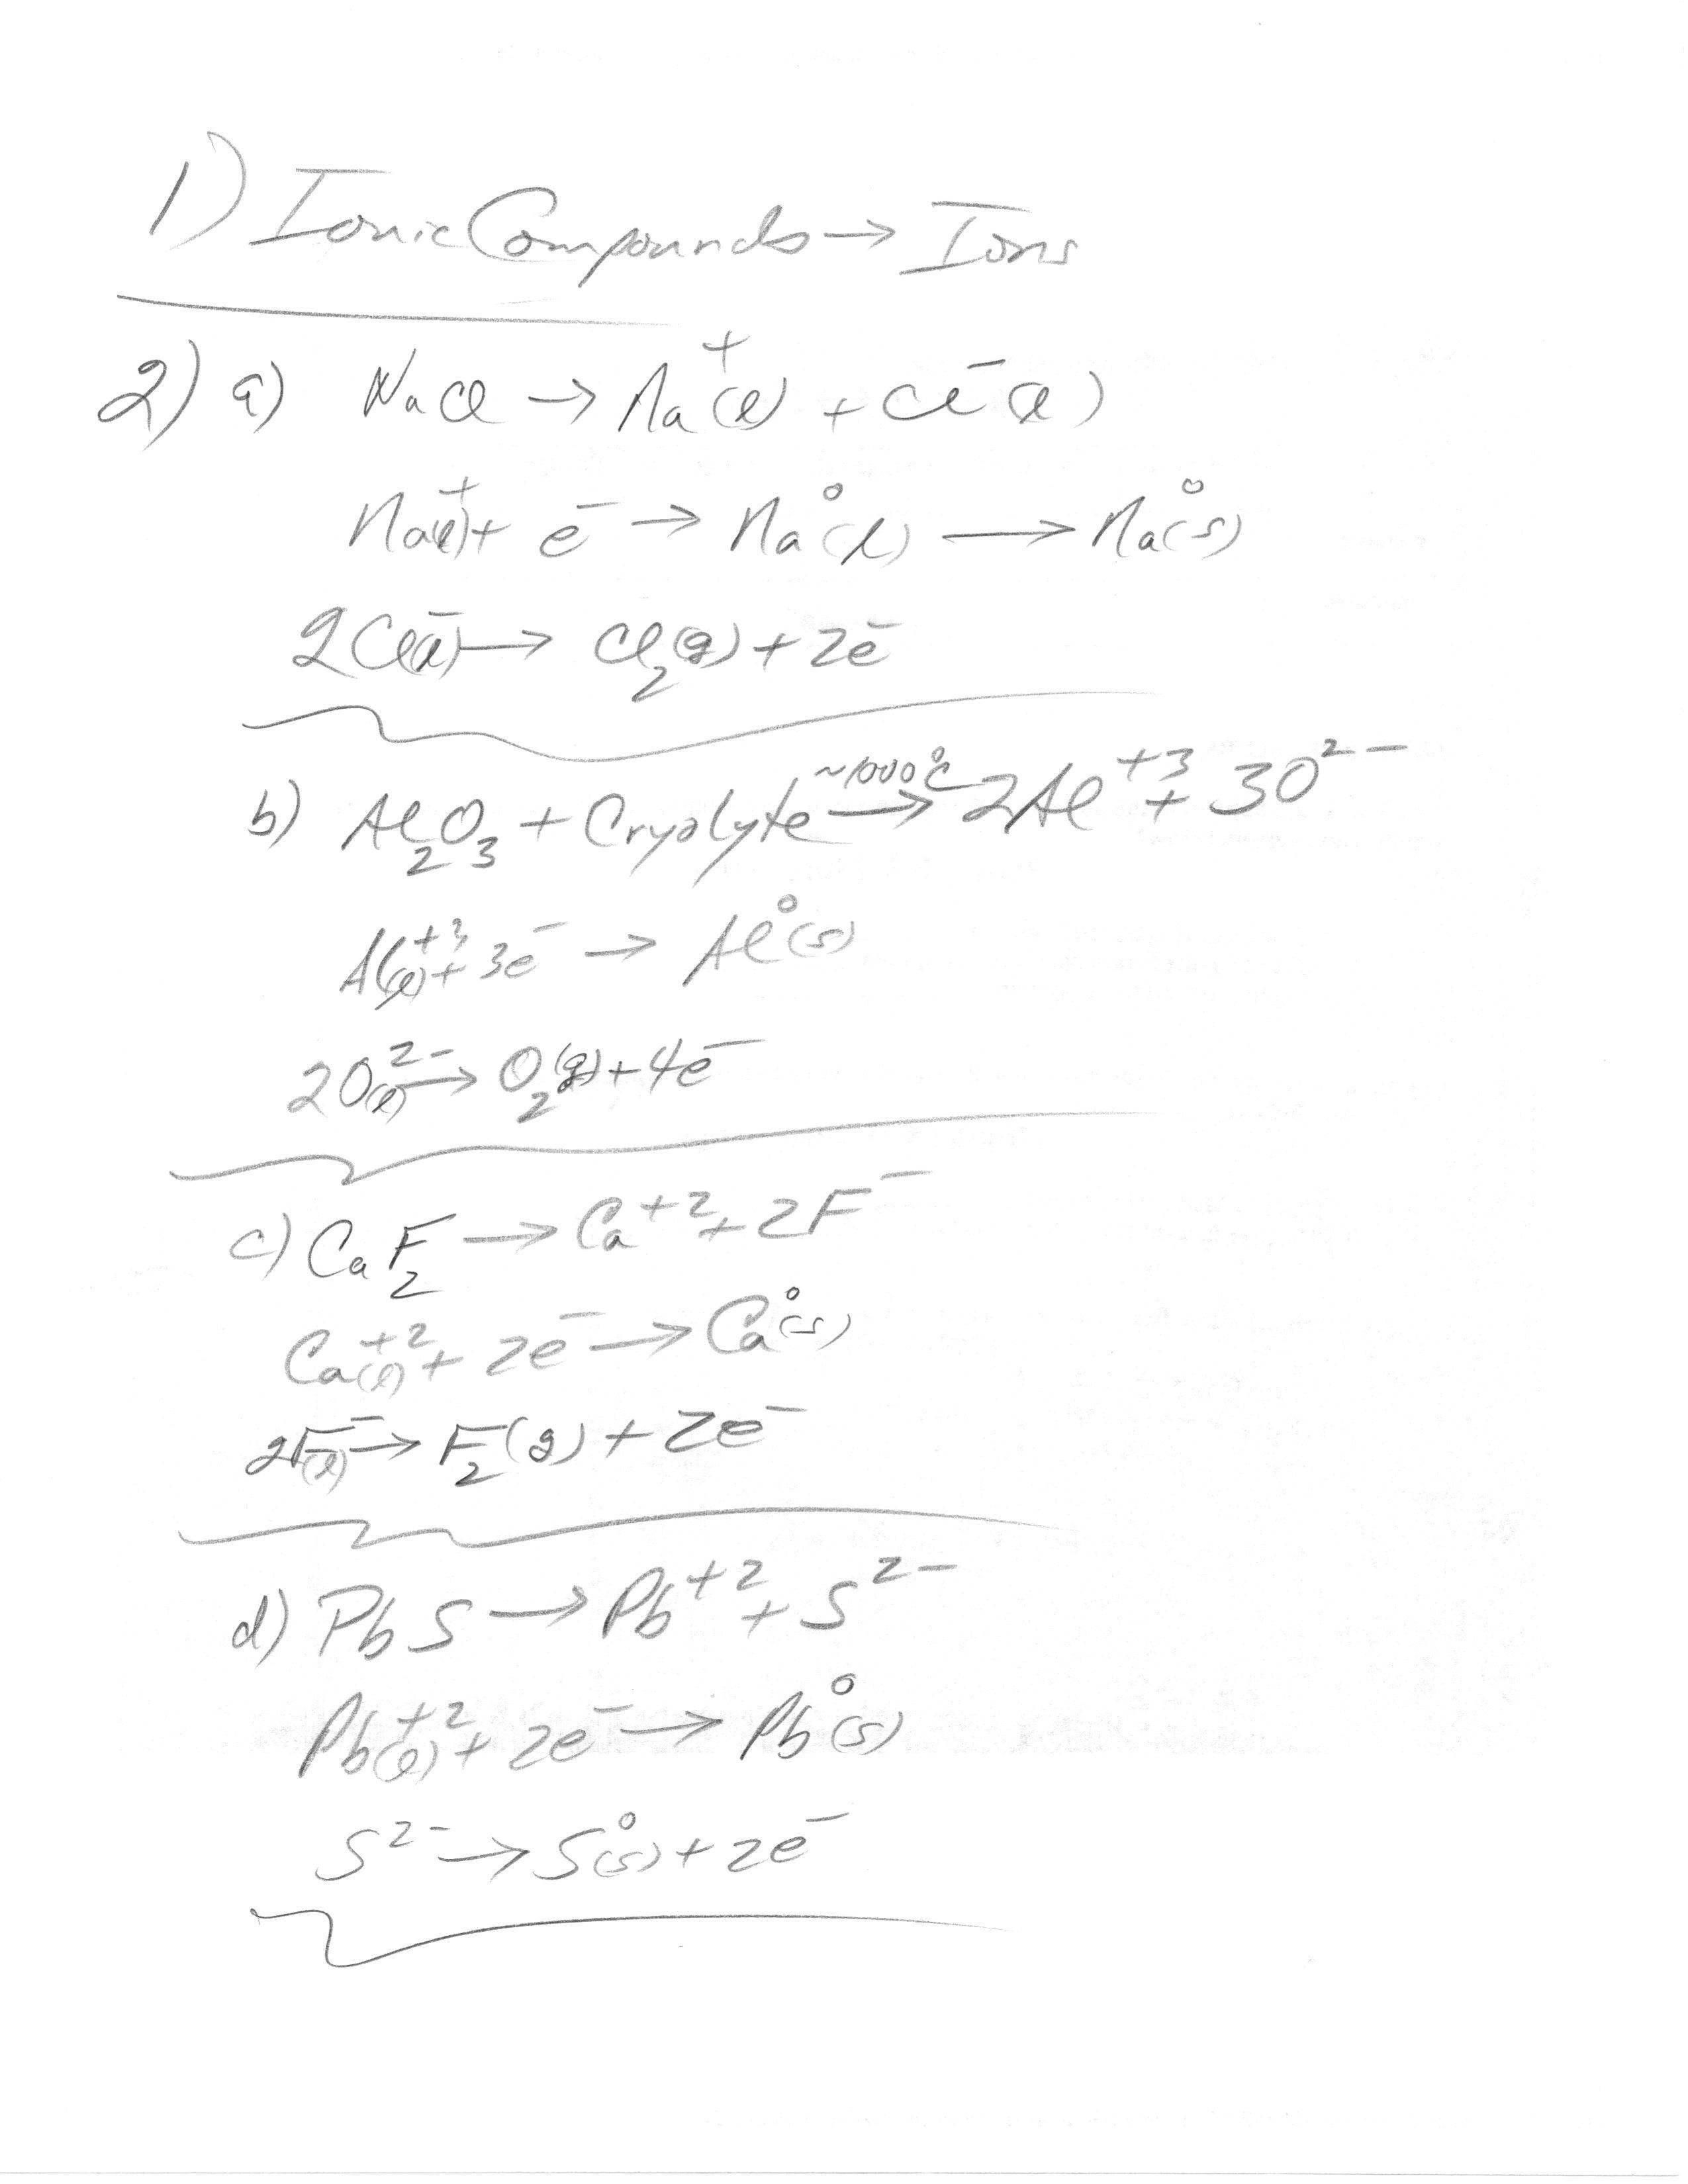 1) Ionic Compounds → Ions
2) a) NaCl → Na⁺(l) + Cl⁻(l)
Na⁺(l) + e⁻ → Na⁰(l) ⟶ Na⁰(s)
2Cl⁻(l) → Cl₂(g) + 2e⁻
b) Al₂O₃ + Cryolyte ~1000°C → 2Al⁺³ + 3O²⁻
Al⁺³(l) + 3e⁻ → Al⁰(s)
2O²⁻(l) → O₂(g) + 4e⁻
c) CaF₂ → Ca⁺² + 2F⁻
Ca⁺²(l) + 2e⁻ → Ca⁰(s)
2F⁻(l) → F₂(g) + 2e⁻
d) PbS → Pb⁺² + S²⁻
Pb⁺²(l) + 2e⁻ → Pb⁰(s)
S²⁻ → S⁰(s) + 2e⁻